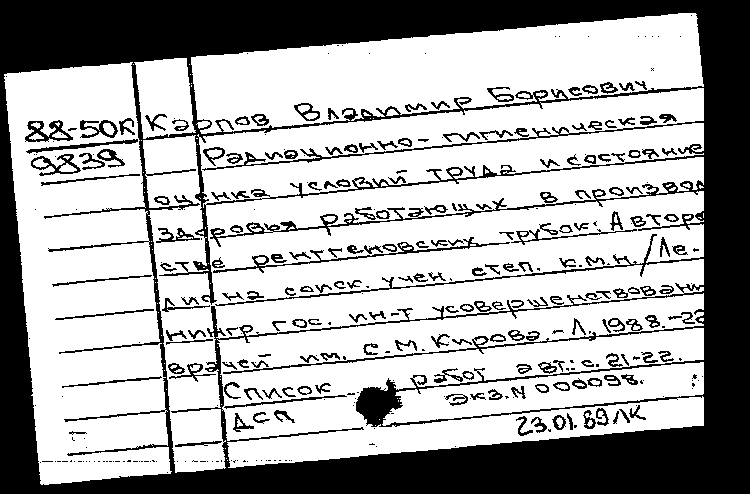 88-50К Карпов, Владимир Борисович.
9839 Радиационно-гигиеническая
оценка условий труда и состояние
здоровья работающих в производ
стве рентгеновских трубок: Авторе
дис на соиск. учен. степ. к.м.н./Ле-
нингр. гос. ин-т усовершенствовани
врачей им. С.М.Кирова.-Л., 1988.-22
Список работ авт.: с. 21-22.
ДСП Экз.N 000098.
23.01.89ЛК